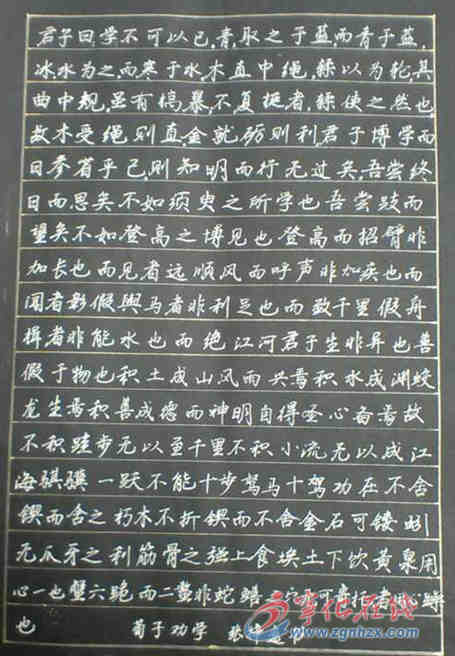 君子曰学不可以已,青,取之于蓝,而青于蓝,
冰水为之而寒于水,木直中绳,鞣以为轮其
曲中规,虽有槁暴,不复挺者,鞣使之然也
故木受绳则直,金就砺则利君子博学而
日参省乎己,则知明而行无过矣,吾尝终
日而思矣不如须臾之所学也吾尝跂而
望矣不如登高之博见也登高而招臂非
加长也而见者远顺风而呼声非加疾也而
闻者彰假舆马者非利足也而致千里假舟
楫者非能水也而绝江河君子生非异也善
假于物也积土成山风雨兴焉积水成渊蛟
龙生焉积善成德而神明自得圣心备焉故
不积跬步无以至千里不积小流无以成江
海骐骥一跃不能十步驽马十驾功在不舍
锲而舍之朽木不折锲而不舍金石可镂蚓
无爪牙之利筋骨之强上食埃土下饮黄泉用
心一也蟹六跪而二螯非蛇鳝
也
荀子劝学
宁化在线
www.zgnhzx.com